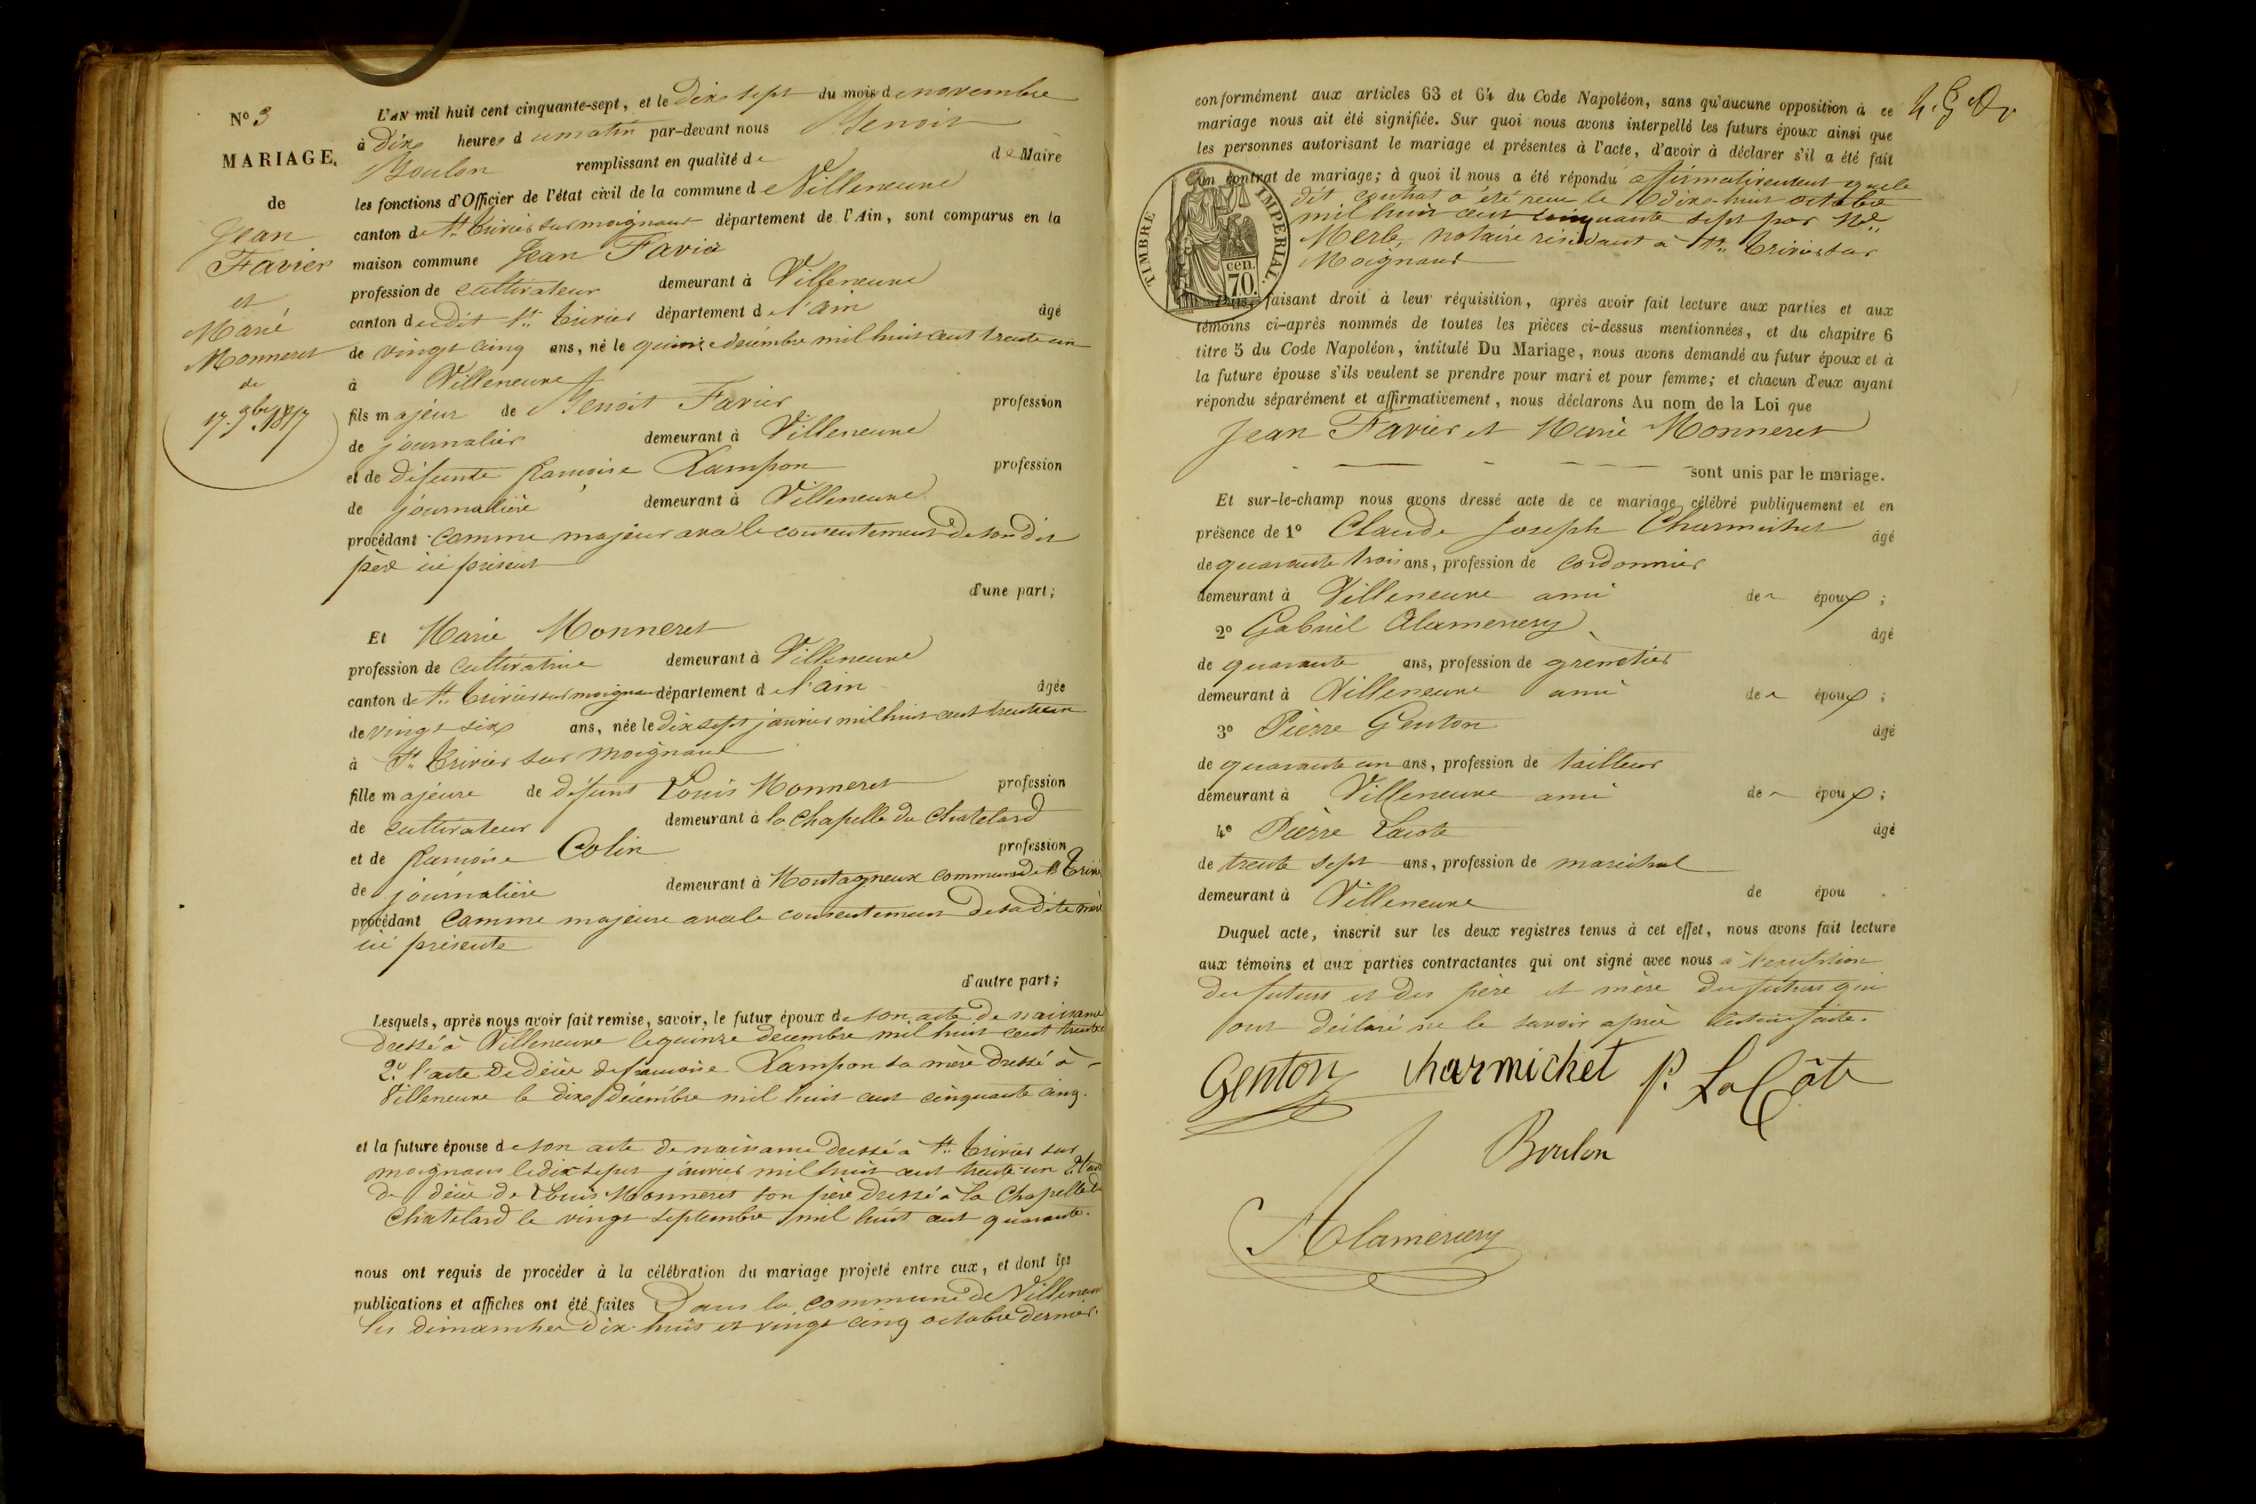 N° 3
MARIAGE
de
Jean
Favier
et
Marie
Monneret
du
17. 9bre 1857
L'AN mil huit cent cinquante-sept, et le dix sept du mois de novembre
à dix heures du matin par-devant nous Benoit
Boulon remplissant en qualité de de Maire
les fonctions d'Officier de l'état civil de la commune de Villeneuve
canton de St. Trivier sur moignans département de l'Ain, sont comparus en la
maison commune Jean Favier
profession de cultivateur demeurant à Villeneuve
canton dudit St. Trivier département de l'ain âgé
de vingt cinq ans, né le quinze décembre mil huit cent trente un
à Villeneuve
fils majeur de Benoit Favier profession
de journalier demeurant à Villeneuve
et de défunte françoise Lampon profession
de journalière demeurant à Villeneuve
procédant comme majeur avec le consentement de son dit
père ici présent
d'une part;
Et Marie Monneret
profession de cultivatrice demeurant à Villeneuve
canton de St. Trivier sur moignans département de l'ain âgée
de vingt six ans, née le dix sept janvier mil huit cent trente un
à St. Trivier sur moignans
fille majeure de défunt Louis Monneret profession
de cultivateur demeurant à la Chapelle du Chatelard
et de françoise Colin profession
de journalière demeurant à Montagneux commune de St Trivier
procédant comme majeure avec le consentement de sa dite mère
ici présente
d'autre part;
Lesquels, après nous avoir fait remise, savoir, le futur époux de son acte de naissance
dressé à Villeneuve le quinze décembre mil huit cent trente
2° l'acte de décès de françoise Lampon sa mère dressé à
Villeneuve le dix décembre mil huit cent cinquante cinq.
et la future épouse de son acte de naissance dressé à St. Trivier sur
moignans le dix sept janvier mil huit cent trente un 2° l'acte
de décès de Louis Monneret son père dressé à la Chapelle du
Chatelard le vingt septembre mil huit cent quarante.
nous ont requis de procéder à la célébration du mariage projeté entre eux, et dont les
publications et affiches ont été faites Dans la commune de Villeneuve
les dimanches dix-huit et vingt cinq octobre dernier.
conformément aux articles 63 et 64 du Code Napoléon, sans qu'aucune opposition à ce
mariage nous ait été signifiée. Sur quoi nous avons interpellé les futurs époux ainsi que
les personnes autorisant le mariage et présentes à l'acte, d'avoir à déclarer s'il a été fait
un contrat de mariage; à quoi il nous a été répondu affirmativement que le
dit contrat a été reçu le dix-huit octobre
mil huit cent cinquante sept par Me.
Merle, notaire résidant à St. Trivier sur
Moignans
TIMBRE IMPERIAL.
cen.
70.
Puis, faisant droit à leur réquisition, après avoir fait lecture aux parties et aux
témoins ci-après nommés de toutes les pièces ci-dessus mentionnées, et du chapitre 6
titre 5 du Code Napoléon, intitulé Du Mariage, nous avons demandé au futur époux et à
la future épouse s'ils veulent se prendre pour mari et pour femme; et chacun d'eux ayant
répondu séparément et affirmativement, nous déclarons Au nom de la Loi que
Jean Favier et Marie Monneret
sont unis par le mariage.
Et sur-le-champ nous avons dressé acte de ce mariage célébré publiquement et en
présence de 1° Claude Joseph Charmichet âgé
de quarante trois ans, profession de cordonnier
demeurant à Villeneuve ami de époux;
2° Gabriel Alamercery âgé
de quarante ans, profession de grenetier
demeurant à Villeneuve ami de époux;
3° Pierre Genton âgé
de quarante un ans, profession de tailleur
demeurant à Villeneuve ami de époux;
4° Pierre Lacote âgé
de trente sept ans, profession de marechal
demeurant à Villeneuve de épou .
Duquel acte, inscrit sur les deux registres tenus à cet effet, nous avons fait lecture
aux témoins et aux parties contractantes qui ont signé avec nous à l'exception
des futurs et des père et mère des futurs qui
ont déclaré ne le savoir après lecture faite.
Genton Charmichet P. La Côte
Boulon
Alamercery